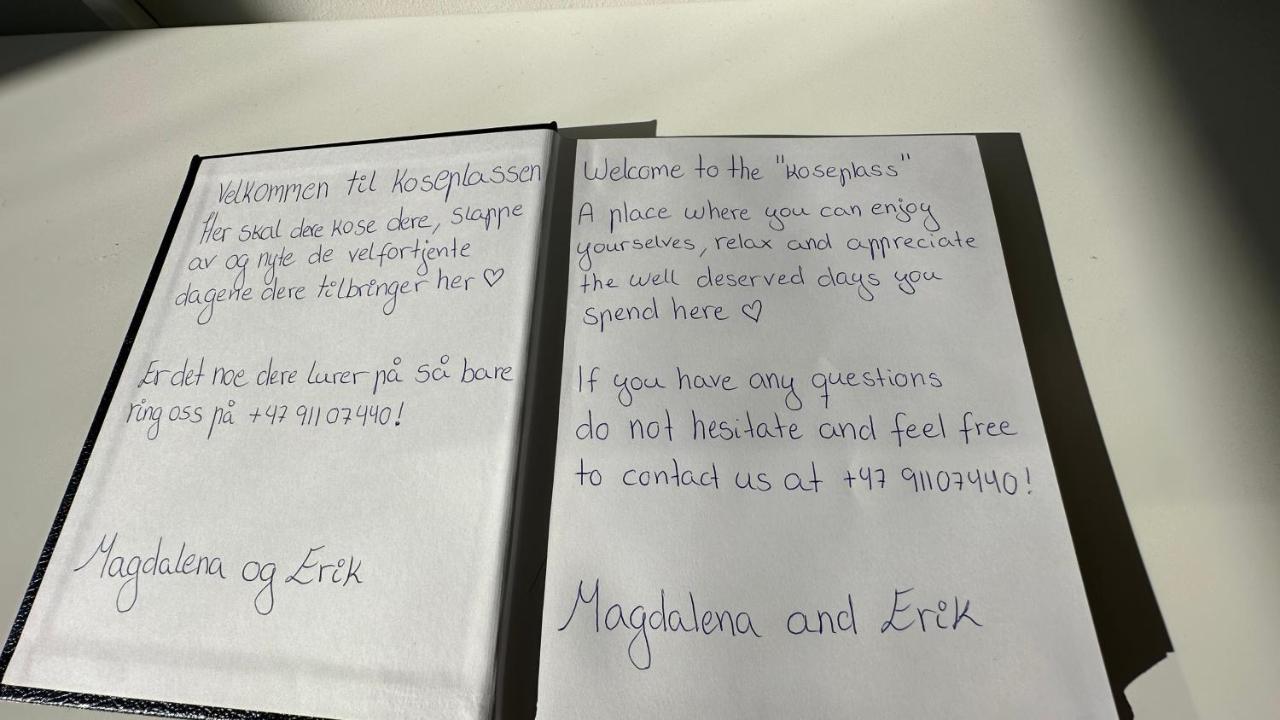 Velkommen til Koseplassen
Her skal dere kose dere, slappe
av og nyte de velfortjente
dagene dere tilbringer her ♡
Er det noe dere lurer på så bare
ring oss på +47 911 07440!
Magdalena og Erik
Welcome to the "koseplass"
A place where you can enjoy
yourselves, relax and appreciate
the well deserved days you
spend here ♡
If you have any questions
do not hesitate and feel free
to contact us at +47 91107440!
Magdalena and Erik